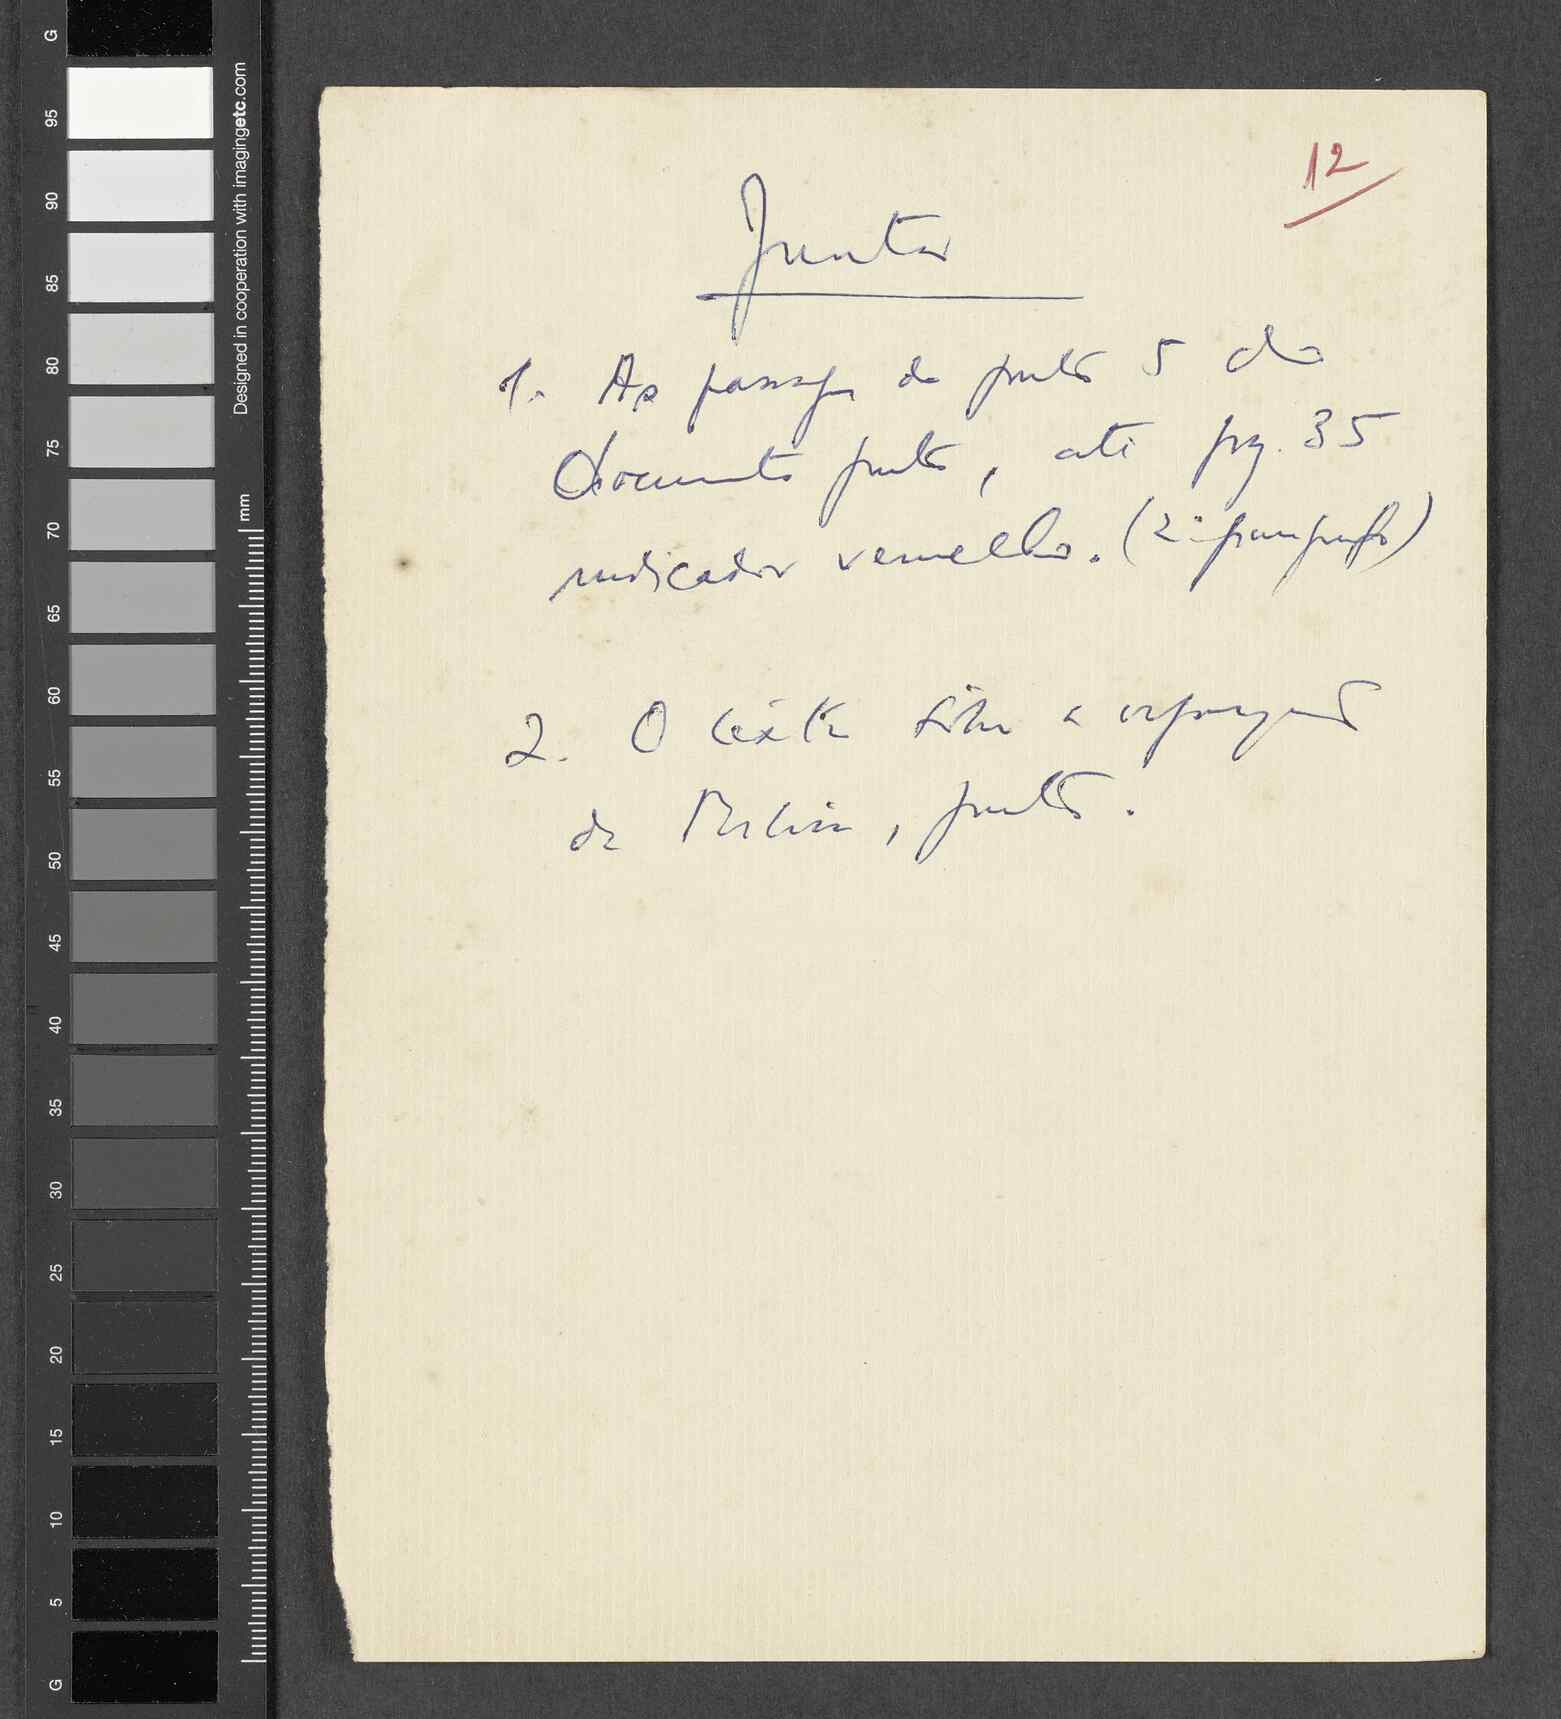 12
Juntar
1. As passagens do ponto 5 do
documento junto, até pg. 35
indicador vermelho. (2º parágrafo)
2. O texto sobre a
de Berlim, junto.
G
95
90
85
80
75
70
65
60
55
50
45
40
35
30
25
20
15
10
5
G
Designed in cooperation with imagingetc.com
mm